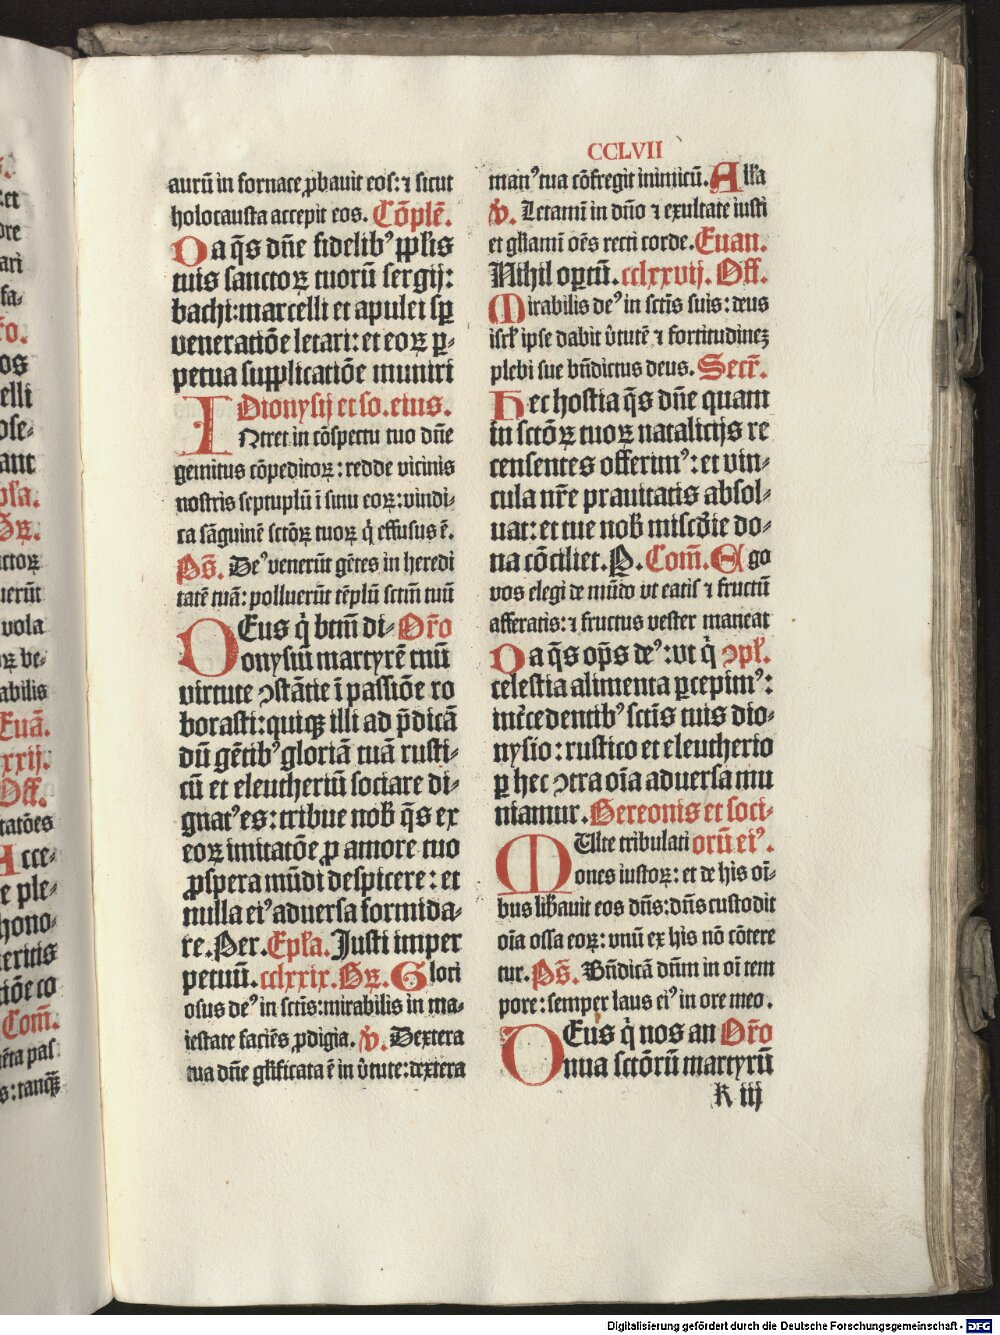 CCLVII
aurū in fornace ꝓbauit eos: ⁊ sicut
holocausta accepit eos. Cōplē.
Da q̄s dn̄e fidelibꝰ ppl̄is
tuis sanctoꝝ tuorū sergij:
bachi: marcelli et apulei sꝑ
veneratiōe letari: et eoꝝ ꝑ⸗
petua supplicatiōe muniri
Dionysij et so. eius.
INtret in cōspectu tuo dn̄e
gemitus cōpeditoꝝ: redde vicinis
nostris septuplū ī sinu eoꝝ: vindi⸗
ca sāguinē sctōꝝ tuoꝝ q̇ effusus ē.
Ps̄. Deꝰ venerūt gētes in heredi
tatē tuā: polluerūt tēplū sctm̄ tuū
DEus q̇ btm̄ di⸗ Or̄o
onysiū martyrē tuū
virtute ꝯstātie ī passiōe ro
borasti: quiqꝫ illi ad p̄dicā
dū gētibꝰ gloriā tuā rusti⸗
cū et eleutheriū sociare di⸗
gnatꝰ es: tribue nob̄ q̄s ex
eoꝝ imitatōe ꝓ amore tuo
ꝓspera mūdi despicere: et
nulla eiꝰ aduersa formida⸗
re. Per. Epl̄a. Justi imper
petuū. cclxxix. Gꝝ. Glori
osus deꝰ in sctīs: mirabilis in ma⸗
iestate faciēs ꝓdigia. v̄. Dextera
tua dn̄e gl̄ificata ē in v̇tute: dextera
manꝰ tua cōfregit inimicū. All̄a
v̄. Letamī in dn̄o ⁊ exultate iusti
et gl̄iamī oēs recti corde. Euan.
Nihil oꝑtū. cclxxvij. Off.
Mirabilis deꝰ in sctīs suis: deus
isrl̄ ipse dabit v̇tutē ⁊ fortitudineꝫ
plebi sue bn̄dictus deus. Secr̄.
Hec hostia q̄s dn̄e quam
in sctōꝝ tuoꝝ natalicijs re
censentes offerimꝰ: et vin⸗
cula nr̄e prauitatis absol⸗
uat: et tue nob̄ miscd̄ie do⸗
na cōciliet. P. Com̄. Ego
vos elegi de mūdo vt eatis ⁊ fructū
afferatis: ⁊ fructus vester maneat
Da q̄s oꝑs deꝰ: vt q̇ ꝯpl̄.
celestia alimenta ꝑcepimꝰ:
int̄cedentibꝰ sctīs tuis dio⸗
nysio: rustico et eleutherio
ꝑ hec ꝯtra oīa aduersa mu
niamur. Gereonis et soci⸗
MUlte tribulati orū eiꝰ.
ones iustoꝝ: et de his oī⸗
bus lib̄auit eos dn̄s: dn̄s custodit
oīa ossa eoꝝ: vnū ex his nō cōtere
tur. Ps̄. Bn̄dicā dn̄m in oī tem
pore: semper laus eiꝰ in ore meo.
DEus q̇ nos an Or̄o
nua sctōrū martyrū
k iij
Digitalisierung gefördert durch die Deutsche Forschungsgemeinschaft - DFG